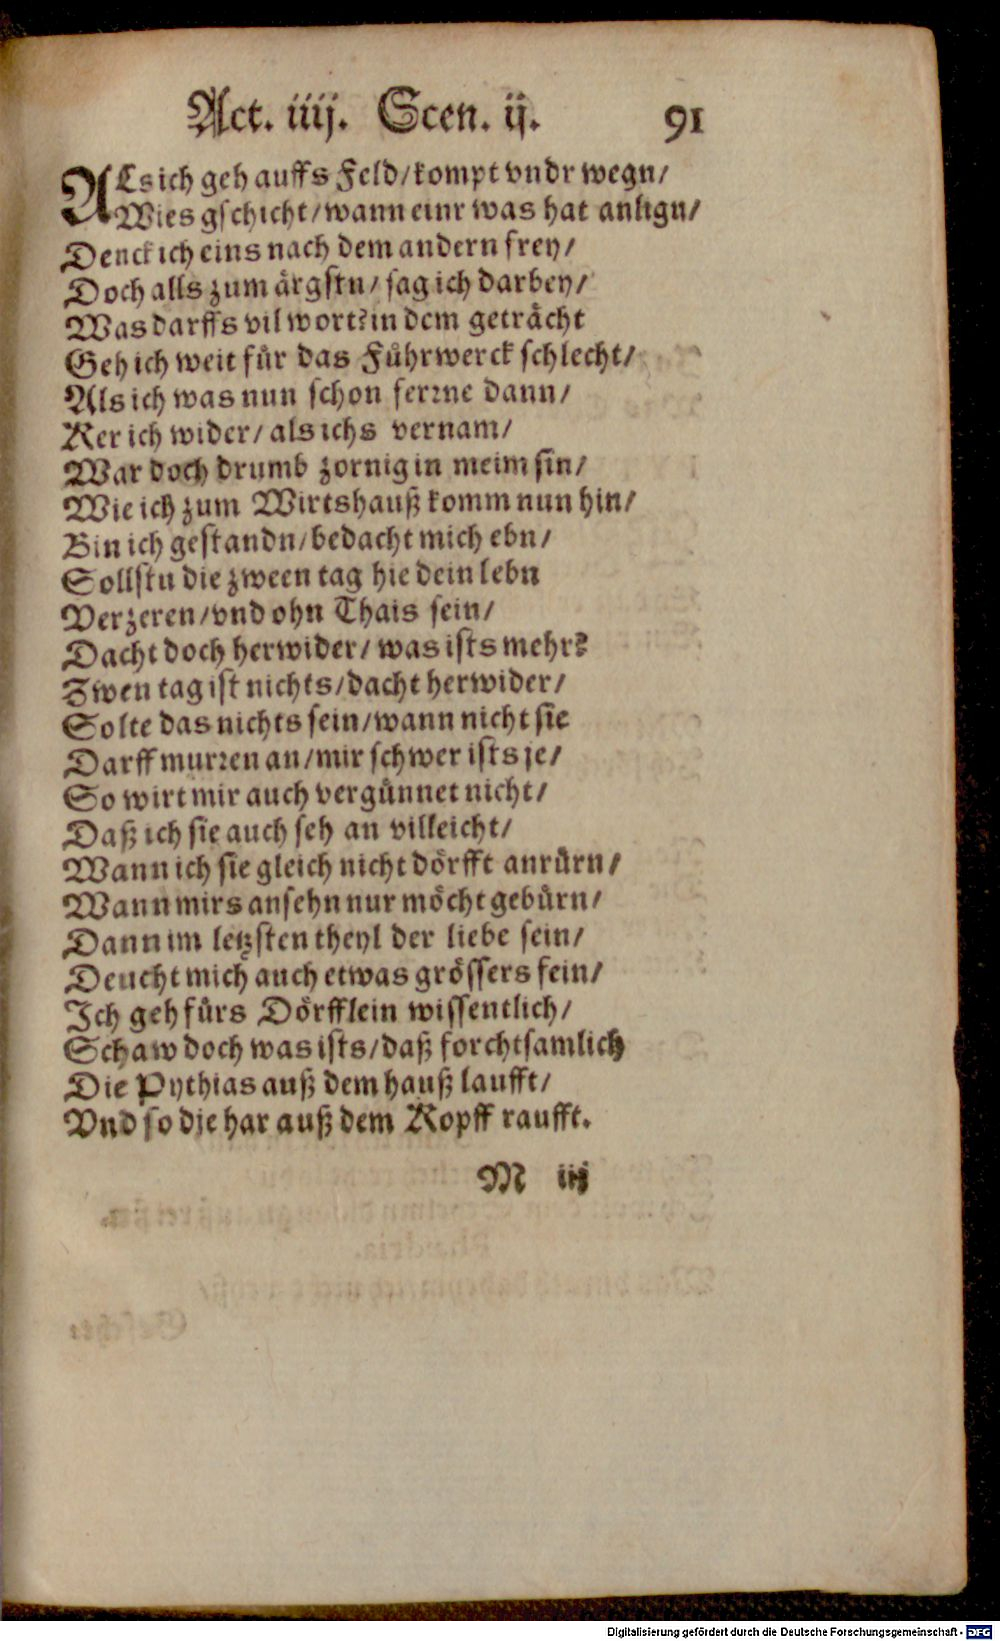 Act. iiij. Scen. ij. 91
ALs ich geh auffs Feld/kompt vndr wegn/
Wies gschicht/wann einr was hat anlign/
Denck ich eins nach dem andern frey/
Doch alls zum ärgstn/ sag ich darbey/
Was darffs vil wort? in dem geträcht
Geh ich weit für das Führwerck schlecht/
Als ich was nun schon ferrne dann/
Ker ich wider/ als ichs vernam/
War doch drumb zornig in meim sin/
Wie ich zum Wirtshauß komm nun hin/
Bin ich gestandn/bedacht mich ebn/
Sollstu die zween tag hie dein lebn
Verzeren/vnd ohn Thais sein/
Dacht doch herwider/ was ists mehr?
Zwen tag ist nichts/dacht herwider/
Solte das nichts sein/wann nicht sie
Darff murren an/mir schwer ists je/
So wirt mir auch vergünnet nicht/
Daß ich sie auch seh an villeicht/
Wann ich sie gleich nicht dörfft anrürn/
Wann mirs ansehn nur möcht gebürn/
Dann im letzsten theyl der liebe sein/
Deucht mich auch etwas grössers fein/
Ich geh fürs Dörfflein wissentlich/
Schaw doch was ists/daß forchtsamlich
Die Pythias auß dem hauß laufft/
Vnd so die har auß dem Kopff raufft.
M iij
Digitalisierung gefördert durch die Deutsche Forschungsgemeinschaft - DFG